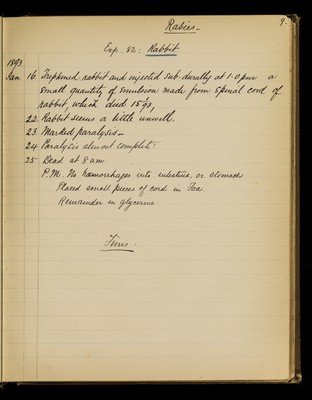 9.
Rabies_
Exp. 82: Rabbit.
1893
Jan. 16. Trephined rabbit and injected sub-durally at 1.0 pm a
small quantity of emulsion made from spinal cord of
rabbit, which died
22. Rabbit seems a little unwell.
23. Marked paralysis_
24. Paralysis almost complete.
25. Dead at 8 am
P.M. No hæmorrhages into intestine, or stomach
Placed small pieces of cord in
Remainder in glycerine
Finis.